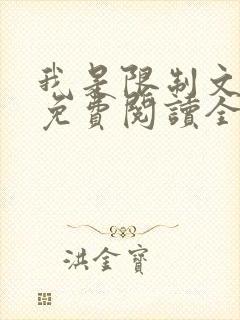 我是限制文
免費閱讀全
洪金寶